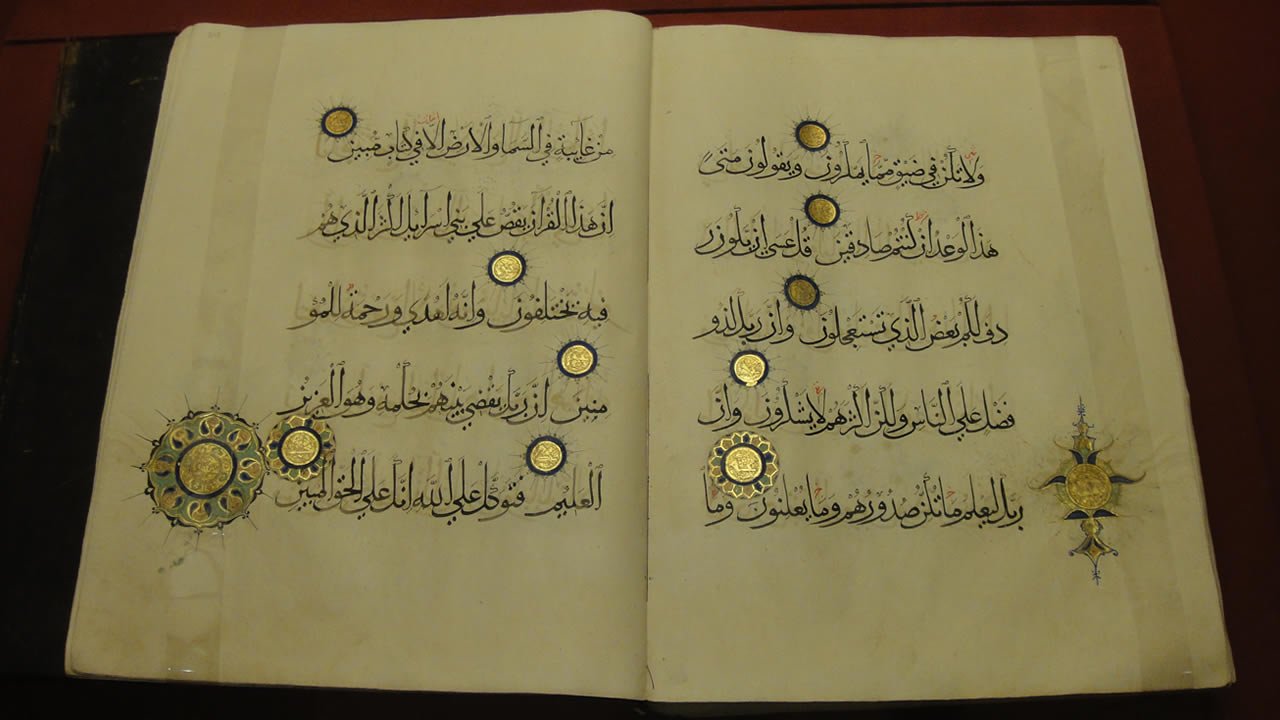 ولا تكن في ضيق مما يمكرون ويقولون متى
هذا الوعد ان كنتم صادقين قل عسى ان يكون ر
دف لكم بعض الذي تستعجلون وان ربك لذو
فضل علي الناس ولكن اكثرهم لا يشكرون وان
ربك ليعلم ما تكن صدورهم وما يعلنون وما
من غايبة في السما والارض الا في كتاب مبين
ان هذا القران يقص علي بني اسرايل اكثر الذي هم
فيه يختلفون وانه لهدي ورحمة للمؤ
منين ان ربك يقضي بينهم بحكمه وهو العزيز
العليم فتوكل علي الله انك علي الحق المبين